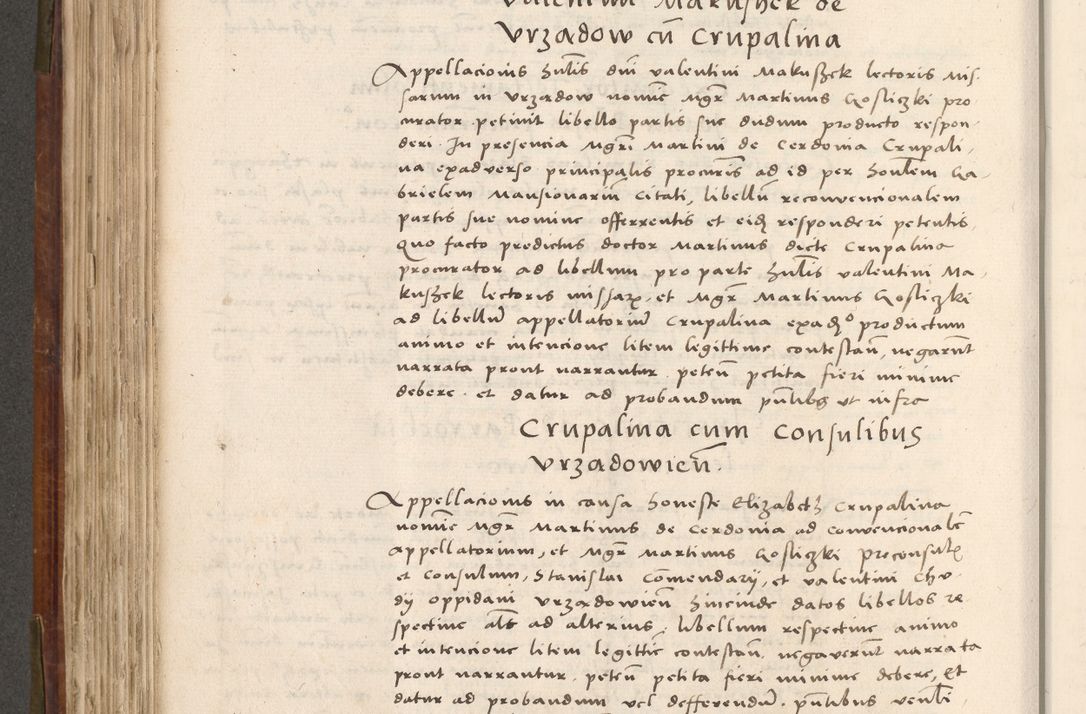 Valentini Makuszek de
Vrzadow cũ Crupalina
Appellacionis huĩlis dñi valentini Makuszek lectoris Mis-
sarum in Vrzadow nomĩe Mgr̃ Martinus Gosliczki pro
curator petinit libello partis sue dudum producto respon-
deri. In presencia Mgr̃i Martini de Cerdonia Crupali,
na exadverso principalis procuris̃ ad id per honñlem Ga-
brielem Mansionariũ Citati, libellũ reconvencionalem
partis sue nomine offerrentis et eidẽ responderi petentis,
quo facto predictus doctor Martinus dicte Crupalina
procurator ad libellum pro parte huĩlis valentini Ma-
kuszek lectoris missarꝝ, et Mgr̃ Martinus Gosliczki
ad libellũ appellatoriũ Crupalina exadº productum
animo et intencione litem legittime contestañ, negarũt
narrata prout narrantur. peteñ petita fieri minime
debere. et datur ad probandum pñtibꝫ ut infra
Crupalina cum Consulibus
Vrzadovieñ.
Appellacionis in causa honeste Elizabeth Crupalina
nomĩe Mgr̃ Martinus de Cerdonia ad Convencionalẽ
appellatorium, et Mgr̃ Martinus Gosliczki Preconsulꝝ
et Consulum, Stanislai Comendarij, et valentini Chv-
dij oppidani Vrzadovieñ hincinde datos libellos re
spective als̃ ad alterius, libellum respective animo
et intencione litem legittĩe contestañ, negaverũt narrata
prout narrantur. peteñ petita fieri minime debere, Et
datur ad probandum vel defferendũ. pñtibus veñli